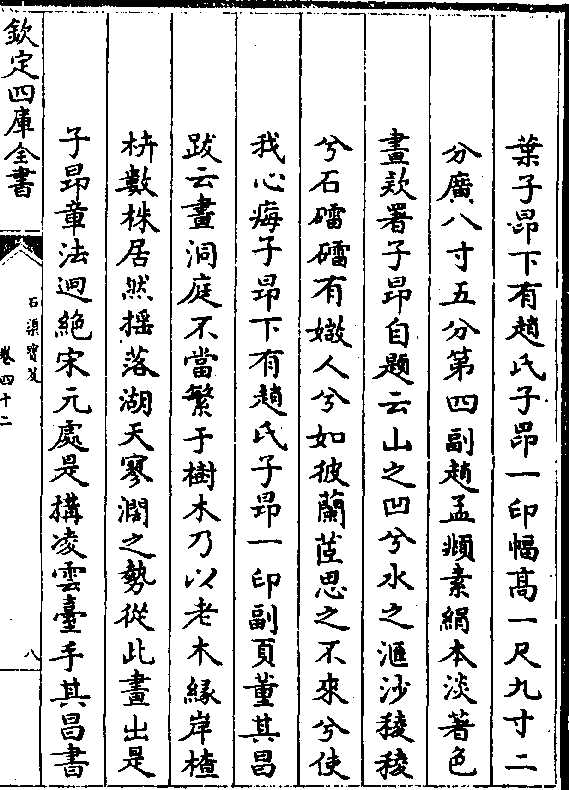 葉子昂下有趙氏子昻一印幅髙一尺九寸二
分廣八寸五分第四副趙孟頫素絹本淡著色
畫欵署子昂自題云山之凹兮水之滙沙稜稜
兮石礌礌有媺人兮如彼蘭茝思之不來兮使
我心痗子昂下有趙氏子昂一印副頁董其昌
跋云畫洞庭不當繁于樹木乃以老木縁岸楂
枿數株居然揺落湖天寥濶之勢從此畫出是
子昂章法迥絶宋元處是搆凌雲臺手其昌書
欽定四庫全書
石渠寶笈
卷四十二
八